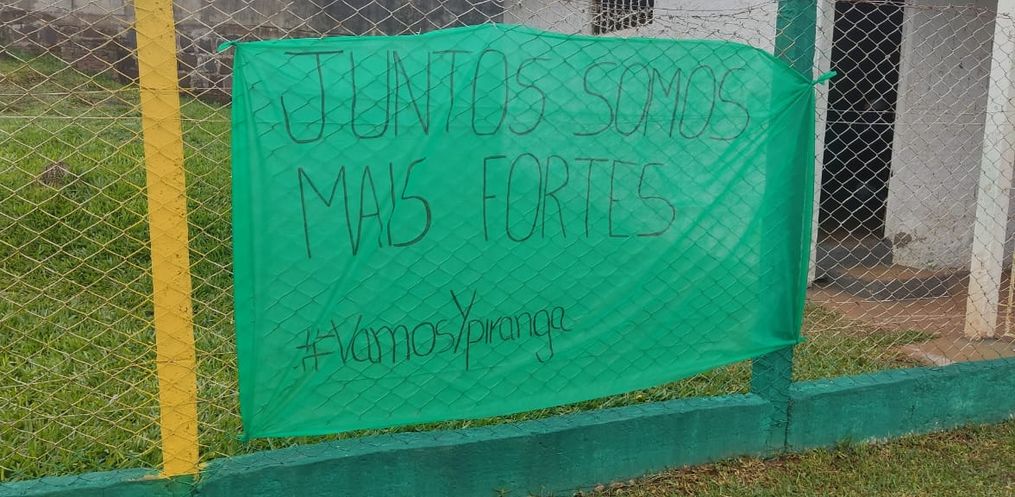 JUNTOS SOMOS
MAIS FORTES
#VamosYpiranga